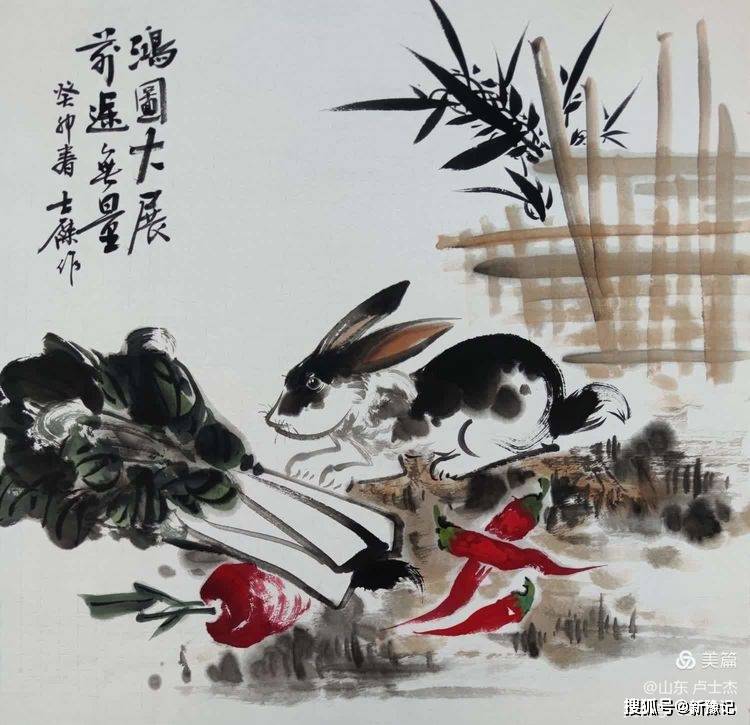 鴻圖大展
前途無量
癸卯春 士傑作
美篇
@山东 卢士杰
搜狐号@新豫记